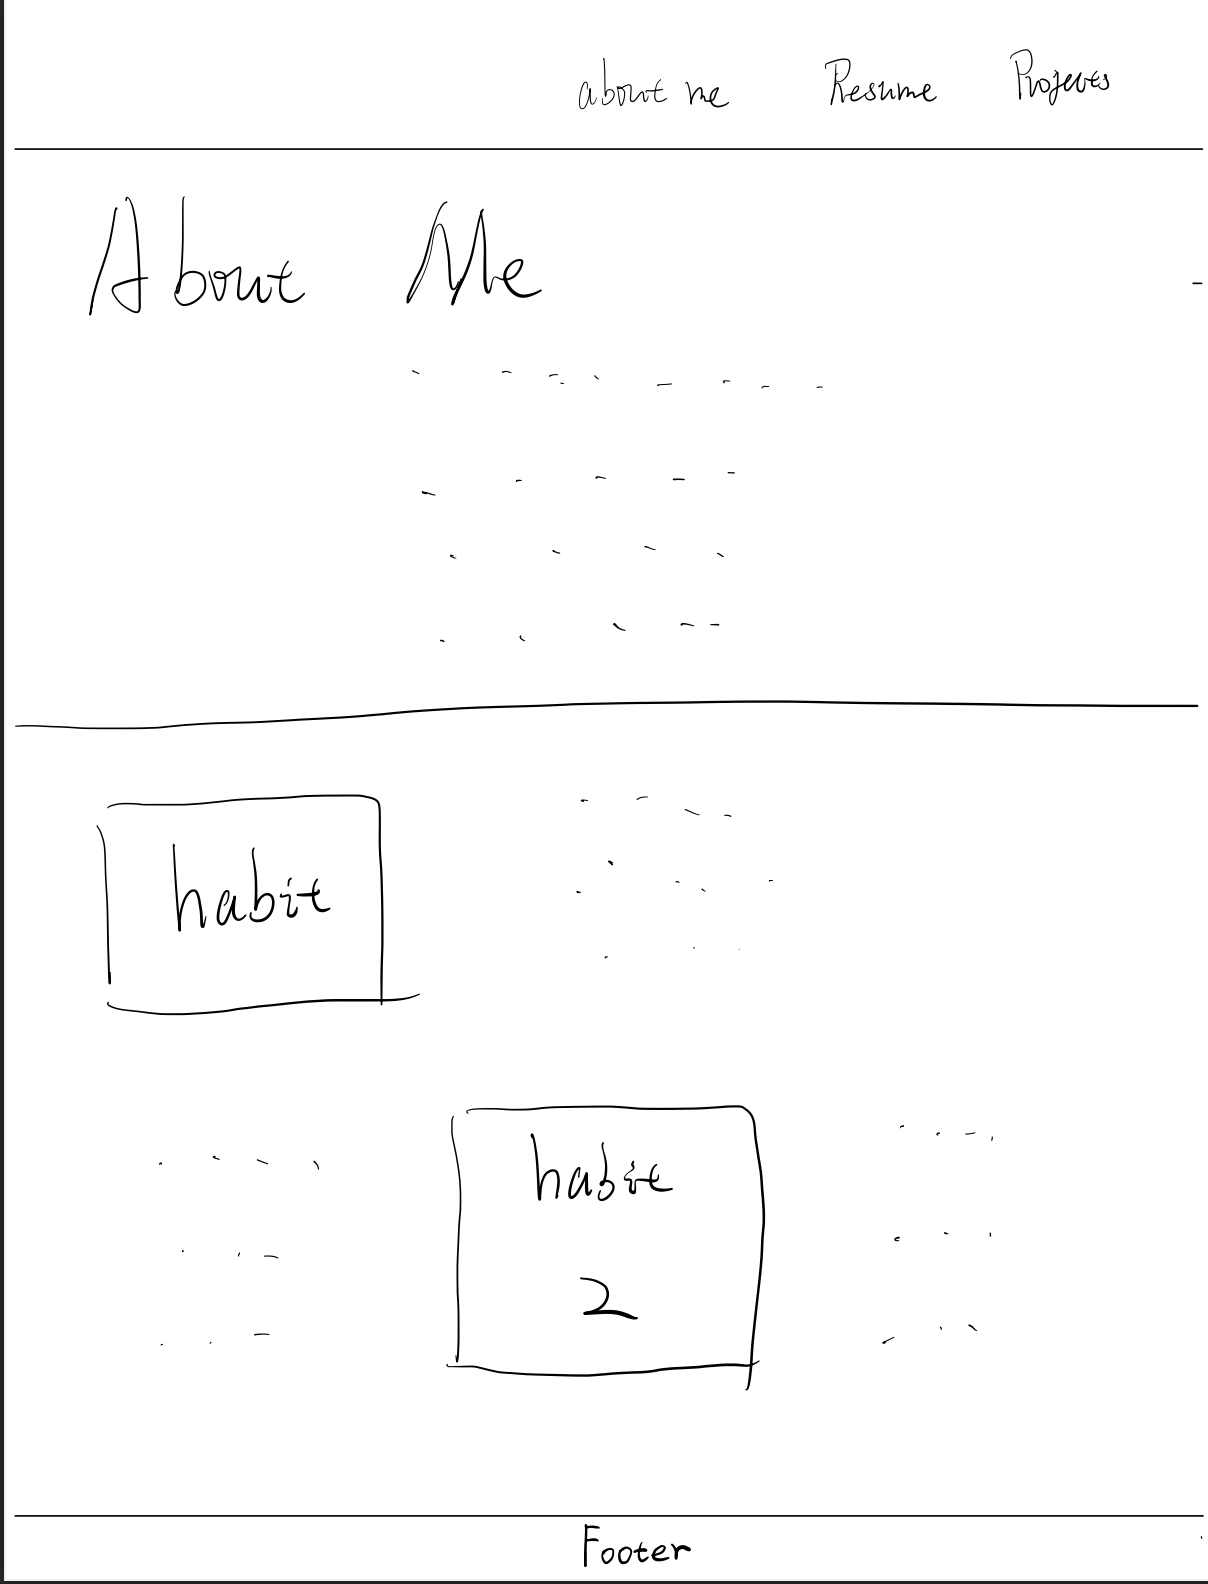 about me Resume Projects
About Me
habit
habit
2
Footer